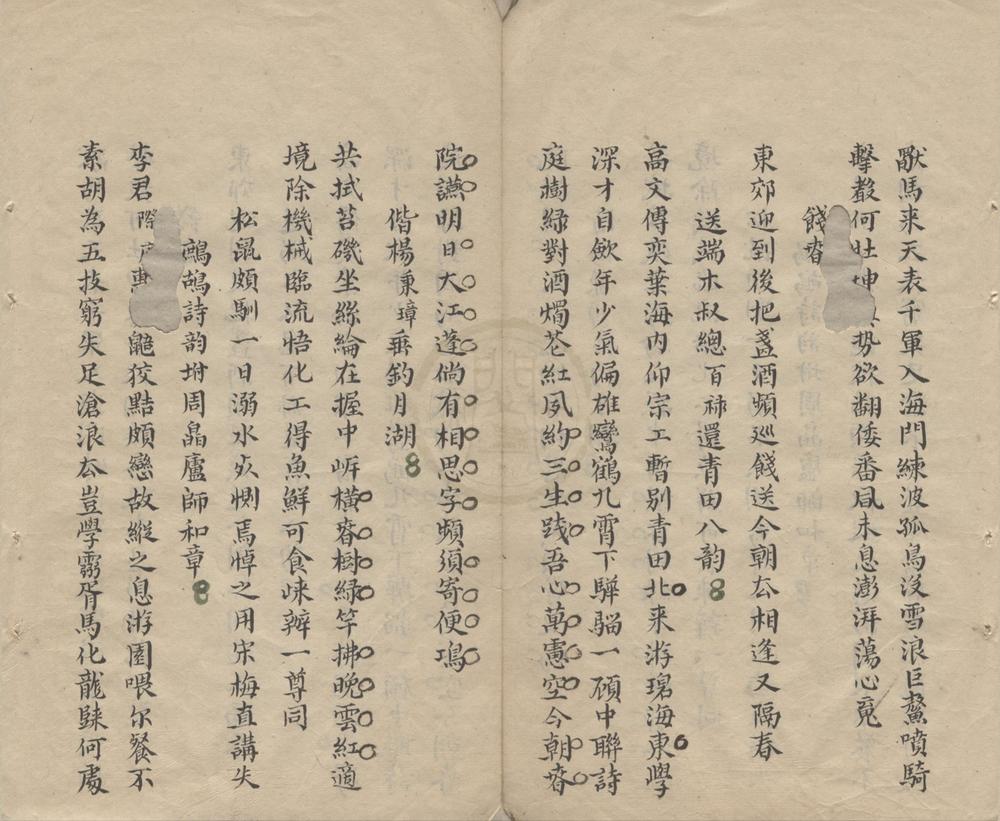 猒馬来天表千軍入海門練波孤鳥沒雪浪巨鰲噴騎
擊轂何壯坤勢欲翻倭番凨未息澎湃蕩心䰟
餞春
東郊迎到後把盞酒頻廵餞送今朝厺相逢又隔春
送端木叔總百祿還青田八韵
高文傳奕葉海内仰宗工暫别青田北来游瑔海東學
深才自歛年少氣偏雄鸞鶴九霄下驊騮一顧中聯詩
庭樹緑對酒燭苍紅夙約三生踐吾心萬慮空今朝春
院讌明日大江蓬倘有相思字頻須寄便鴻
偕楊秉璋垂釣月湖
共拭苔磯坐絲綸在握中㟁横春樹緑竿拂晚雲紅適
境除機械臨流悟化工得魚鮮可食㑣辦一尊同
松鼠頗馴一日溺水死惻焉悼之用宋梅直講失
鷓鴣詩韵坿周晶廬師和章
李君際戶專鼬狡黠頗戀故縱之息游園喂尔餐不
素胡為五技窮失足滄浪厺豈學霧胥馬化龍歸何處